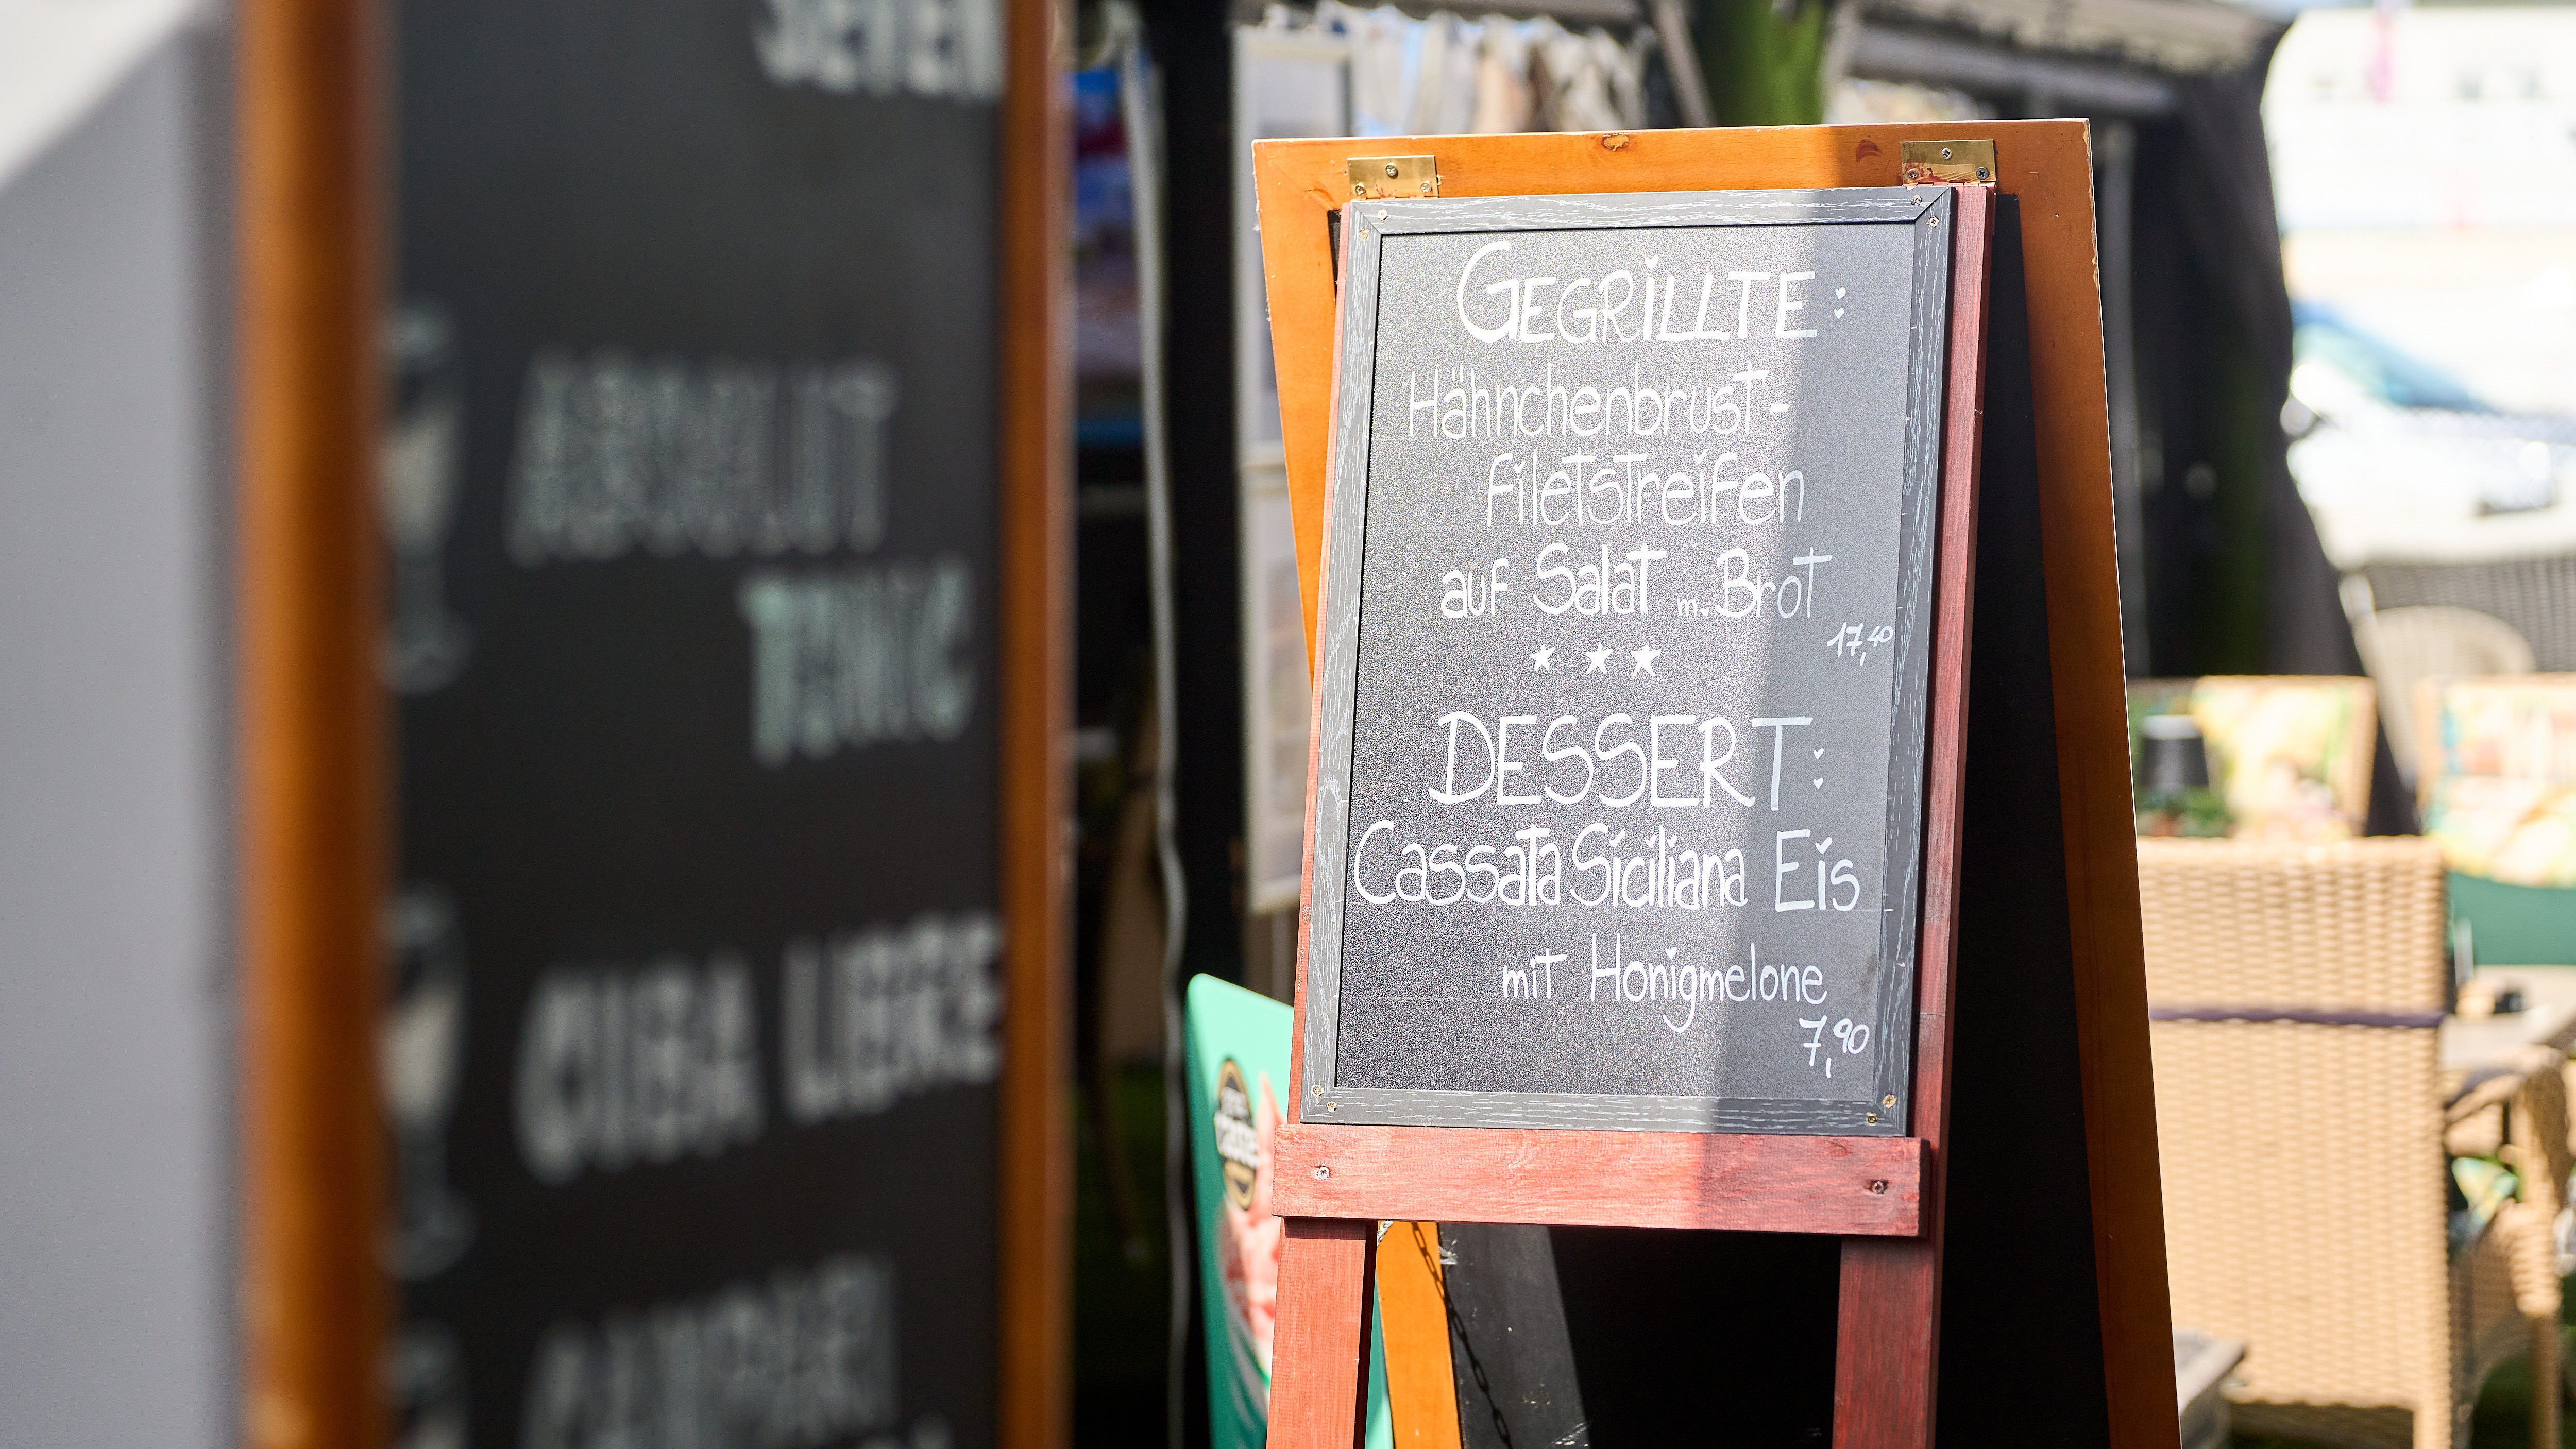 SEVEN
ABSOLUT
TONIC
CUBA LIBRE
CAMPARI
GEGRILLTE:
Hähnchenbrust-
filetstreifen
auf Salat m. Brot
17,40
DESSERT:
Cassata Siciliana Eis
mit Honigmelone
7,90